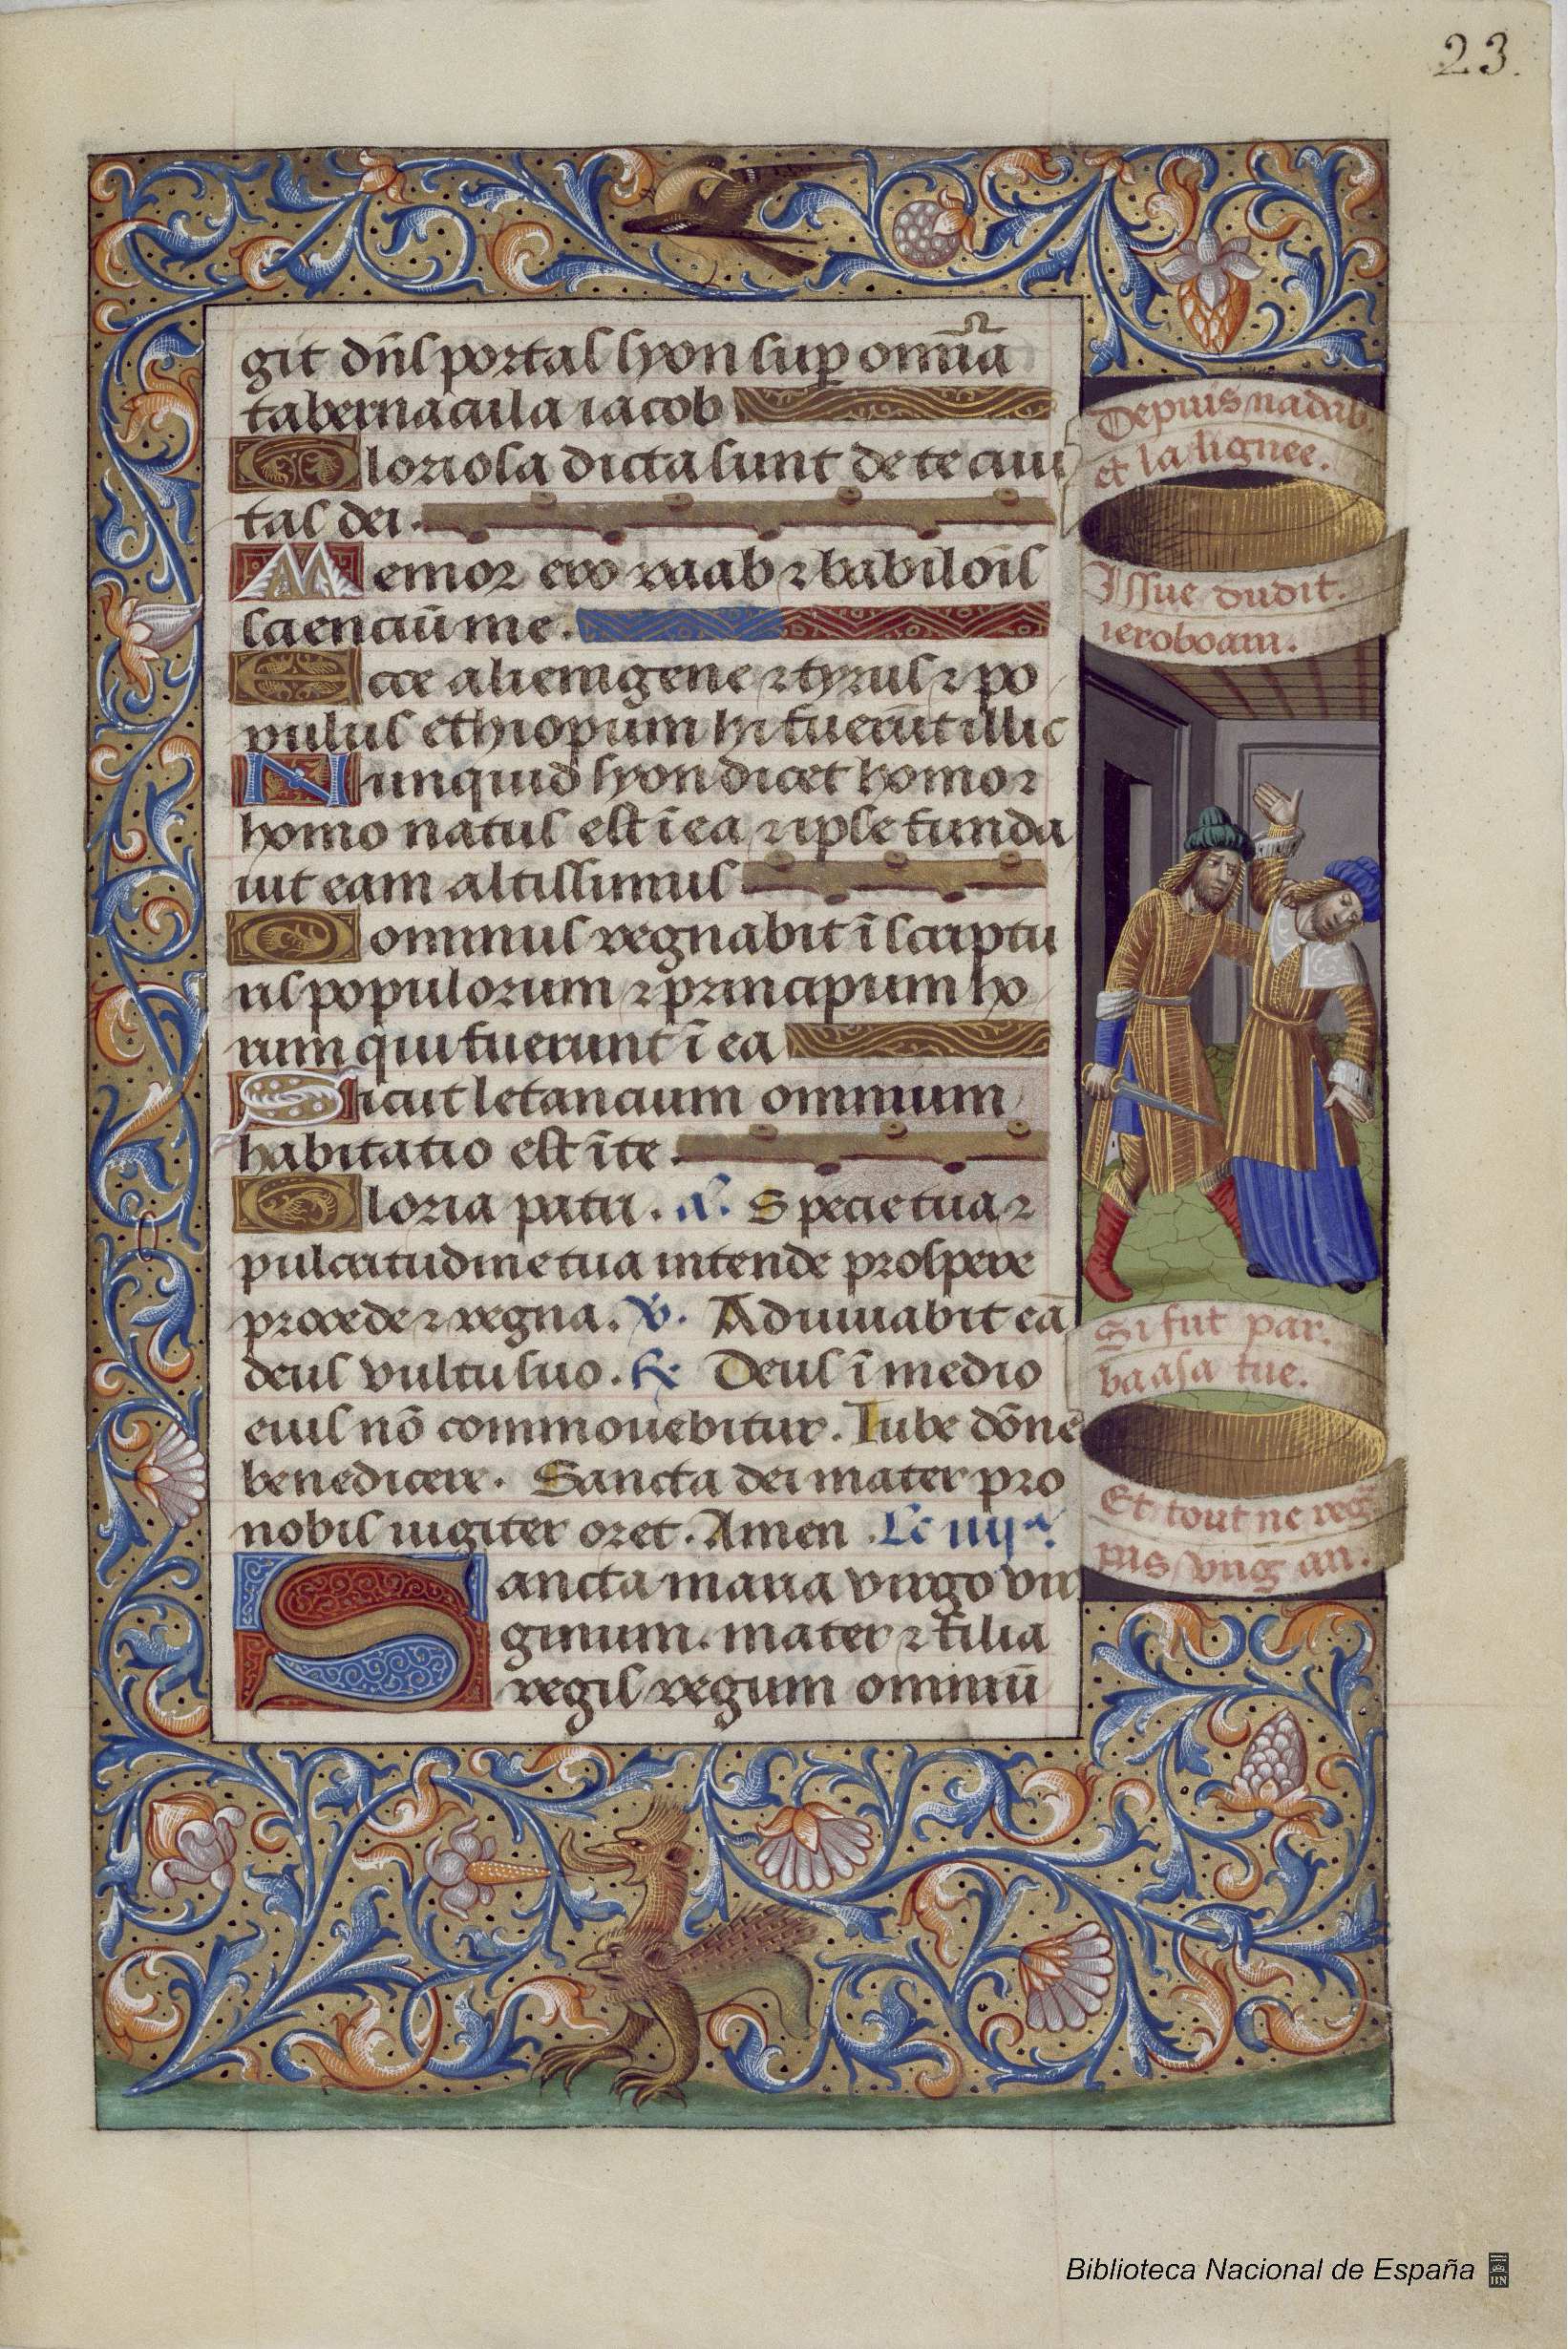 23.
git dñs portas syon sup om̃ia
tabernacula iacob
Gloriosa dicta sunt de te ciui
tas dei.
Memor ero raab ⁊ babiloĩs
scienciũ me.
Ecce alienigene ⁊ tyrus ⁊ po
pulus ethiopum hi fuerũt illic
Nunquid syon dicet homo ⁊
homo natus est ĩ ea ⁊ ipse funda
uit eam altissimus
Dominus regnabit ĩ scriptu
ris populorum ⁊ principum ho
rum qui fuerunt ĩ ea
Sicut letancium omnium
habitatio est ĩ te.
Gloria patri. a. Specie tua ⁊
pulcritudine tua intende prospere
procede ⁊ regna. v. Adiuuabit eã
deus vultu suo. R Deus ĩ medio
eius nõ commouebitur. Iube dõne
benedicere. Sancta dei mater pro
nobis iugiter oret. Amen. Lc iiijᵃ.
Sancta maria virgo vir
ginum. mater ⁊ filia
regis regum omniũ
Depuis nadab.
et la lignee.
Issue dudit.
ieroboam.
Si fut par.
baasa tue.
Et tout ne reg̃
pas vng an.
Biblioteca Nacional de España